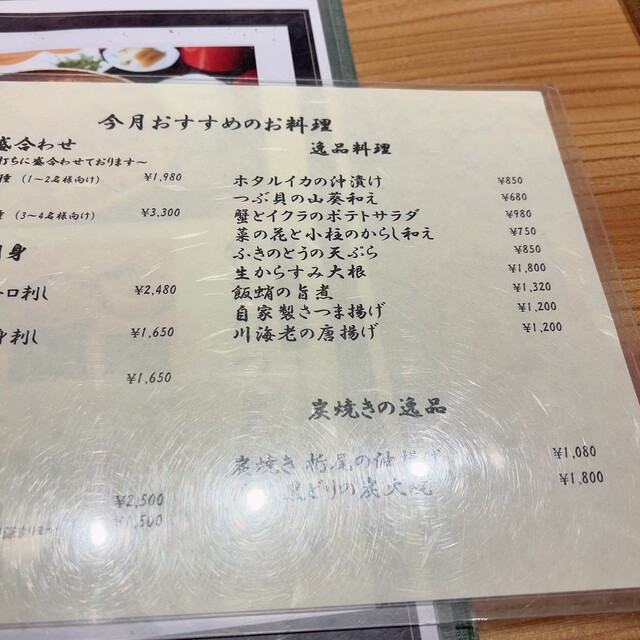 今月おすすめのお料理
盛合わせ
打ちに盛合わせております〜
種 (1〜2名様向け) ¥1,980
種 (3〜4名様向け) ¥3,300
身
トロ刺し ¥2,480
身刺し ¥1,650
¥1,650
¥2,500
¥1,500
逸品料理
ホタルイカの沖漬け ¥850
つぶ貝の山葵和え ¥680
蟹とイクラのポテトサラダ ¥980
菜の花と小柱のからし和え ¥750
ふきのとうの天ぷら ¥850
生からすみ大根 ¥1,800
飯蛸の旨煮 ¥1,320
自家製さつま揚げ ¥1,200
川海老の唐揚げ ¥1,200
炭焼きの逸品
炭焼き 栃尾の油揚げ ¥1,080
どりの炭火焼 ¥1,800